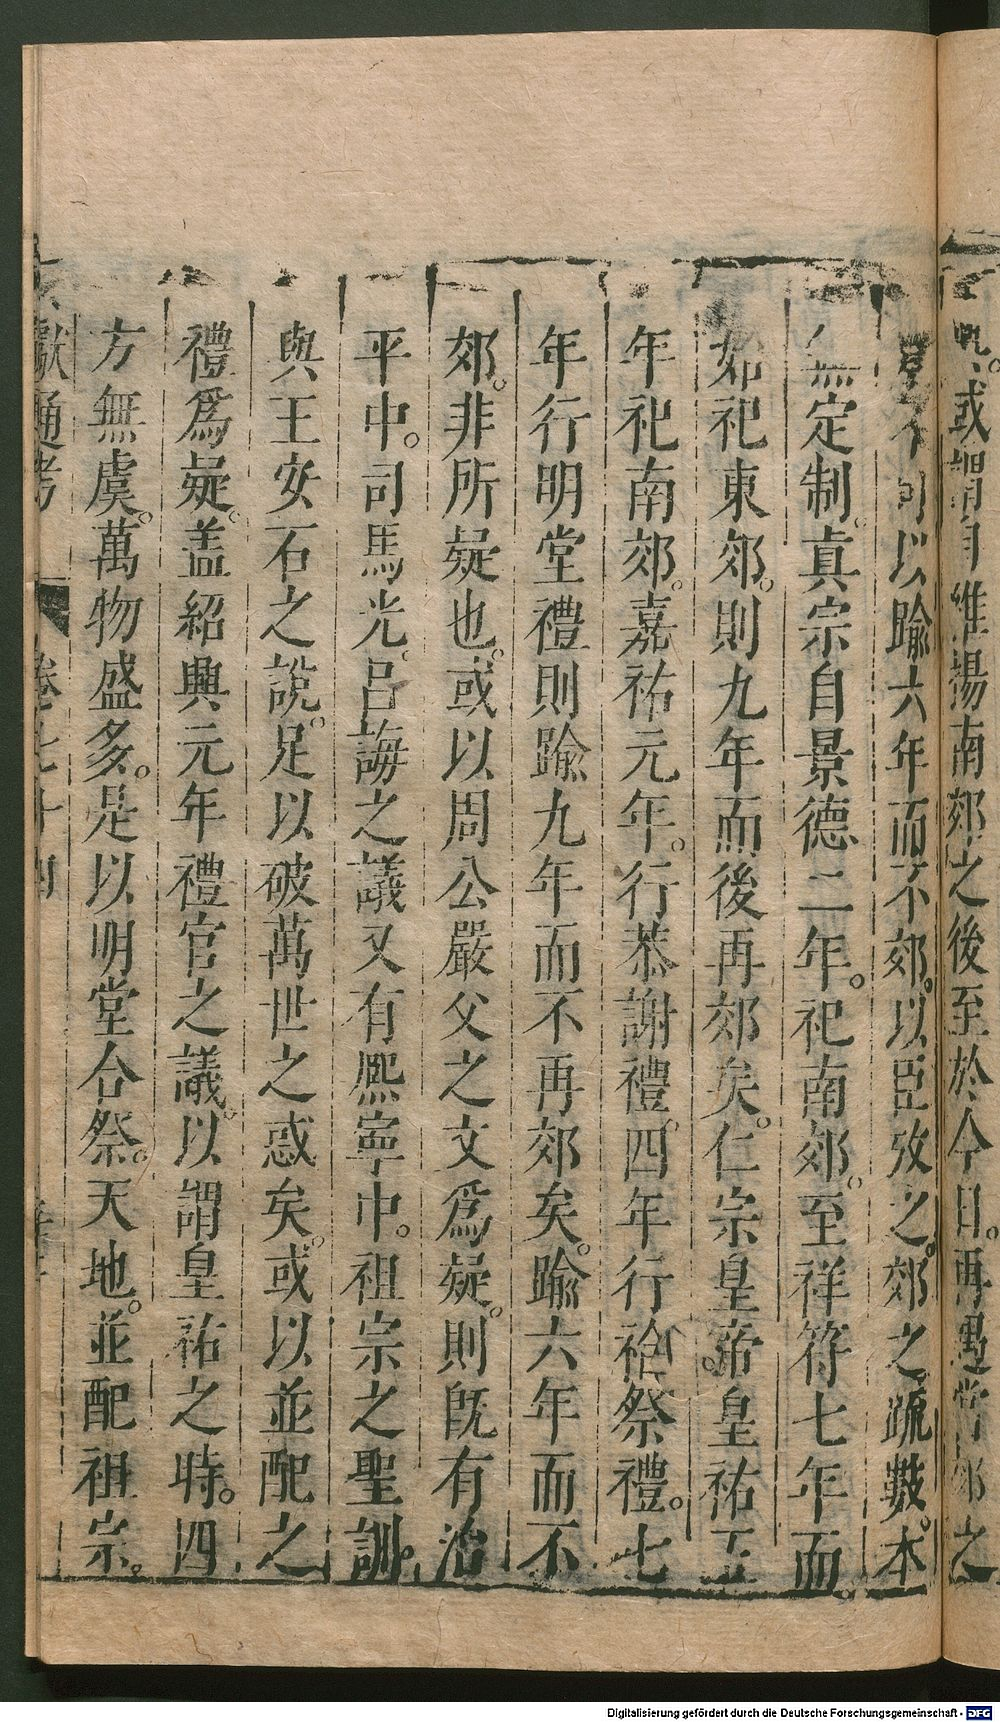 或謂自維揚南郊之後至於今日。再遇當郊之
不可以踰六年而不郊。以臣攷之。郊之疏數。本
無定制。眞宗自景德二年。祀南郊。至祥符七年而。
如祀東郊。則九年而後再郊矣。仁宗皇帝。皇祐五
年祀南郊。嘉祐元年。行恭謝禮。四年行祫祭禮。七
年行明堂禮則踰九年而不再郊矣。踰六年而不
郊。非所疑也。或以周公嚴父之文爲疑。則旣有治
平中。司馬光。呂誨之議又有熈寧中。祖宗之聖訓。
與王安石之說。足以破萬世之惑矣。或以並配之
禮爲疑。盖紹興元年禮官之議。以謂皇祐之時。四
方無虞。萬物盛多。是以明堂合祭。天地。並配祖宗。
獻通考 卷七十四
Digitalisierung gefördert durch die Deutsche Forschungsgemeinschaft - DFG